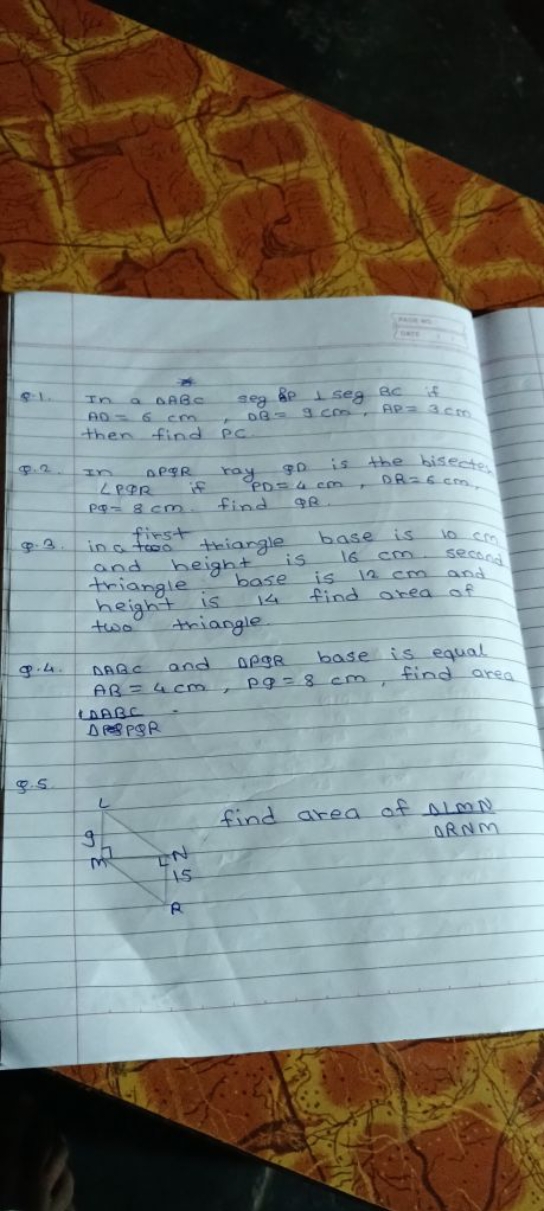 PAGE NO.
DATE
Q.1. In a ΔABC seg BP ⊥ seg BC if
AD = 6 cm, DB = 9 cm, AP = 3 cm
then find PC.
Q.2. In ΔPQR ray QD is the bisecter
∠PQR if PD = 4 cm, DR = 6 cm,
PQ = 8 cm. find QR.
first
Q.3. in a two triangle base is 10 cm
and height is 16 cm. second
triangle base is 12 cm and
height is 14 find area of
two triangle.
Q.4. ΔABC and ΔPQR base is equal
AB = 4 cm, PQ = 8 cm, find area
ΔABC
ΔPQR
Q.5.
L
find area of ΔLMN
ΔRNM
9
M
N
15
R